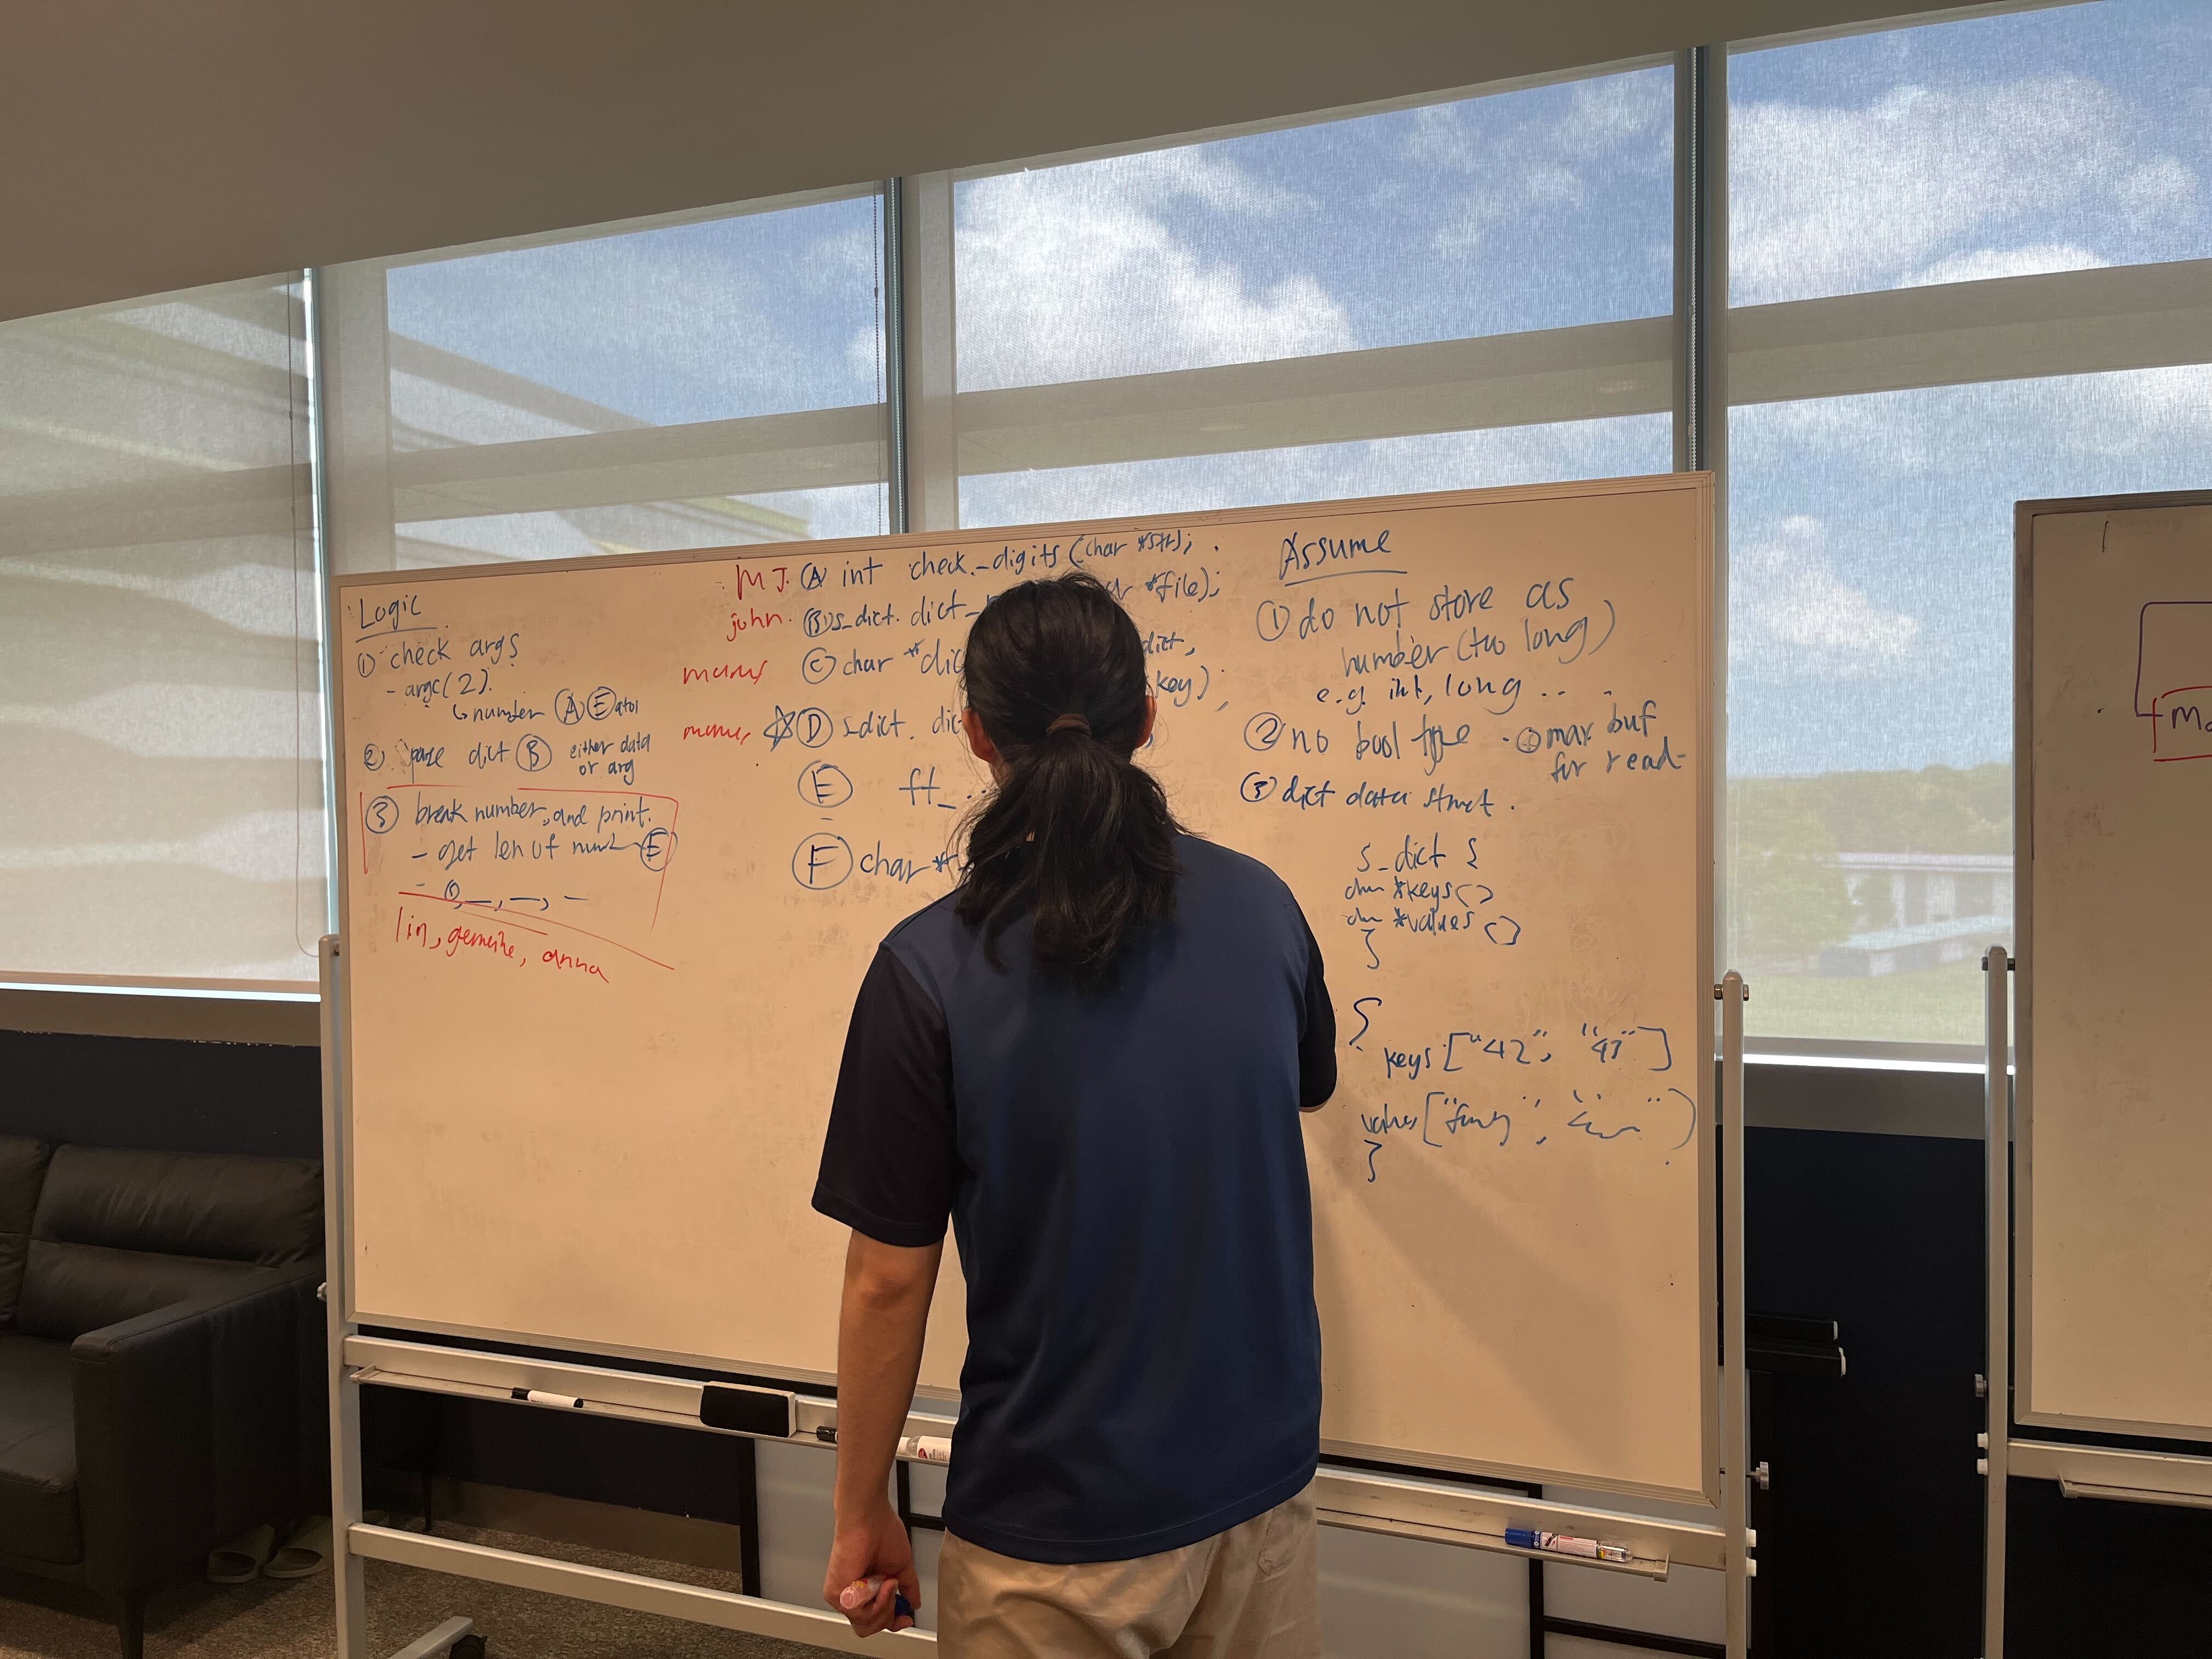 Logic
① check args
- argc(2).
↳ number Ⓐ Ⓔ atoi
② parse dict Ⓑ either data
or arg
③ break number, and print.
- get len of num Ⓔ
lin, anna
MJ. Ⓐ int check_digits (char *str);
john. Ⓑ s_dict. dict_ *file);
Ⓒ char *dic dict,
key);
☆ Ⓓ s_dict. dic
Ⓔ ft_..
Ⓕ char *
Assume
① do not store as
number (too long)
e.g. int, long ..
② no bool type
④ max buf
for read
③ dict data struct.
s_dict {
char *keys[]
char *values []
}
{
keys ["42", "43"]
values [
}
Ma